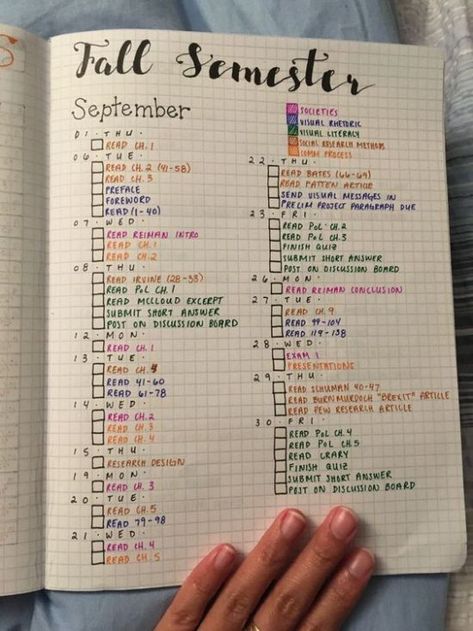 Fall Semester
September
SOCIETIES
VISUAL RHETORIC
VISUAL LITERACY
SOCIAL RESEARCH METHODS
COMM PROCESS
01 · THU ·
READ CH. 1
06 · TUE ·
READ CH. 2 (41-58)
READ CH. 3
PREFACE
FOREWORD
READ (1-40)
07 · WED ·
READ REIMAN INTRO
READ CH. 1
READ CH. 2
08 · THU ·
READ IRVINE (28-33)
READ POL CH. 1
READ MCCLOUD EXCERPT
SUBMIT SHORT ANSWER
POST ON DISCUSSION BOARD
12 · MON ·
READ CH. 1
13 · TUE ·
READ CH.
READ 41-60
READ 61-78
14 · WED ·
READ CH. 2
READ CH. 3
READ CH. 4
15 · THU ·
RESEARCH DESIGN
19 · MON ·
READ CH. 3
20 · TUE ·
READ CH. 5
READ 79-98
21 · WED ·
READ CH. 4
READ CH. 5
22 · THU ·
READ BATES (66-69)
READ PATTEN ARTICLE
SEND VISUAL MESSAGES IN
PRELIM PROJECT PARAGRAPH DUE
23 · FRI ·
READ POL CH. 2
READ POL CH. 3
FINISH QUIZ
SUBMIT SHORT ANSWER
POST ON DISCUSSION BOARD
26 · MON ·
READ REIMAN CONCLUSION
27 · TUE ·
READ CH. 9
READ 99-104
READ 119-138
28 · WED ·
EXAM 1
PRESENTATIONS
29 · THU ·
READ SCHUMAN 40-47
READ BURN MURDOCH "BREXIT" ARTICLE
READ PEW RESEARCH ARTICLE
30 · FRI ·
READ POL CH. 4
READ POL CH. 5
READ CRARY
FINISH QUIZ
SUBMIT SHORT ANSWER
POST ON DISCUSSION BOARD